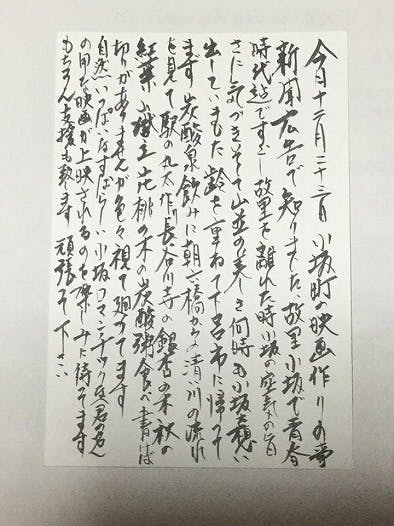 今日十二月二十三日 小坂町の映画作りの夢
新聞広告で知りました 故里小坂で青春
時代過ですごし故里を離れた時小坂の空気の旨
さに気づきそして山並の美しさ何時も小坂を想い
出していました 齢を重ねてて呂市に帰って
ます 炭酸泉飲みに朝六橋から清い川の流れ
を見て駅の 長谷川寺の銀杏の木 秋の
紅葉 桃の木の炭酸粥食べ 書けば
切りがありませんが色々視て廻ってます
自然いっぱいなすばらしい小坂 ロマンチックな君の名
の里で映画が上映されるのを楽しみに待てます
もちろん支援も致します 頑張って下さい